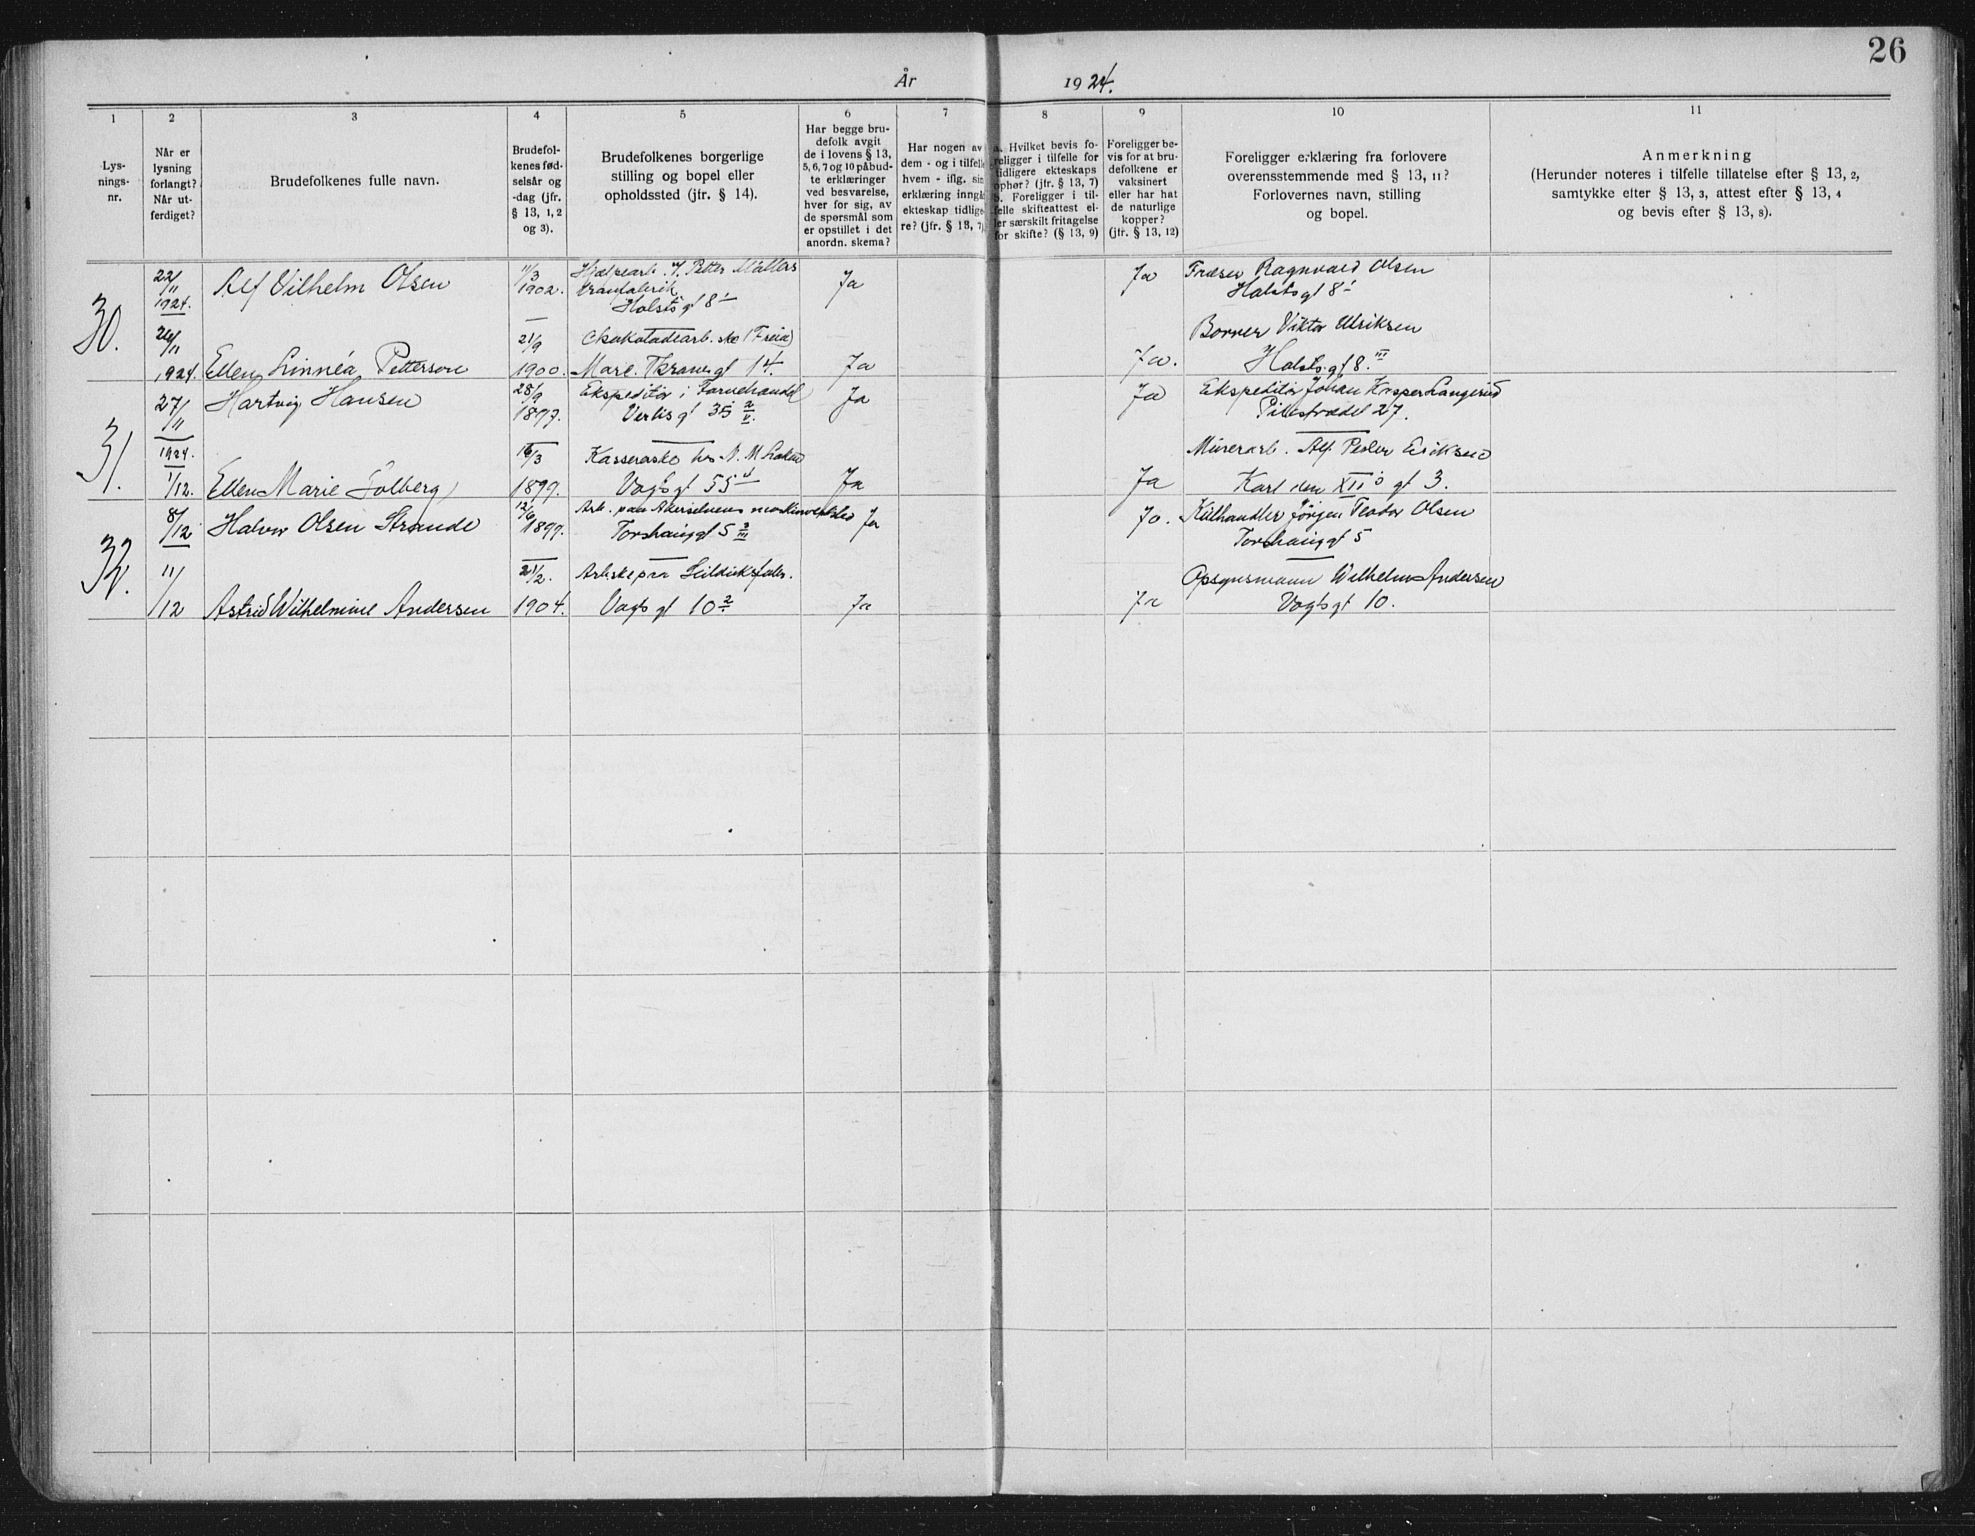 26
År 1924.
1 2 3 4 5 6 7 8 9 10 11
Lys-
nings-
nr.
Når er
lysning
forlangt?
Når ut-
ferdiget?
Brudefolkenes fulle navn.
Brudefol-
kenes fød-
selsår og
-dag (jfr.
§ 13, 1, 2
og 3).
Brudefolkenes borgerlige
stilling og bopel eller
opholdssted (jfr. § 14).
Har begge bru-
defolk avgit
de i lovens § 13,
5, 6, 7 og 10 påbud-
te erklæringer
ved besvarelse,
hver for sig, av
de spørsmål som
er opstillet i det
anordn. skema?
Har nogen av
dem - og i tilfelle
hvem - iflg. sin
erklæring inngå
ekteskap tidlige
re? (jfr. § 13, 7)
a. Hvilket bevis fo-
religger i tilfelle for
tidligere ekteskaps
ophør? (jfr. § 13, 7)
b. Foreligger i til-
felle skifteattest el-
ler særskilt fritagelse
for skifte? (§ 13, 9)
Foreligger be-
vis for at bru-
defolkene er
vaksinert
eller har hat
de naturlige
kopper?
(jfr. § 13, 12)
Foreligger erklæring fra forlovere
overensstemmende med § 13, 11?
Forlovernes navn, stilling
og bopel.
Anmerkning
(Herunder noteres i tilfelle tillatelse efter § 13, 2,
samtykke efter § 13, 3, attest efter § 13, 4
og bevis efter § 13, 8).
30.
22/11
1924.
Alf Vilhelm Olsen
11/3
1902.
Hjælpearb. v. Petter Møllers
tranfabrik
Holsts gt 8
Ja
Ja
Fræser Ragnvald Olsen
Holsts gt 8
/11
1924.
Ellen Linnéa Petterson
21/9
1900.
Chokoladearb.ske (Freia)
Marc. Thranes gt 14.
Ja
Ja.
Borrer Viktor Ulriksen
Holsts gt 8 III
31.
27/11
1924.
Hartvig Hansen
28/9
1897.
Ekspeditør i Farvehandel
gt 35 2/V
Ja
Ja
Ekspeditør Johan Kasper Langerud
Pilestrædet 27.
1/12.
Ellen Marie Solberg
16/3
1899.
Kassererske hos N. M.
Vogts gt 55
Ja
Ja
Murerarb. Alf Peder Eriksen
Karl den XII's gt 3.
32.
8/12
Halvor Olsen Strande
12/6
1899.
Arb. paa Akerselvens mek.
Torshauggt 5 2/III
Ja
Ja.
Kulhandler Jörgen Teodor Olsen
Torshauggt 5
11/12
Astrid Wilhelmine Andersen
21/2.
1904.
Arb.ske paa
Vogts gt 10 2
Ja
Ja
Opsynsmann Wilhelm Andersen
Vogts gt 10.